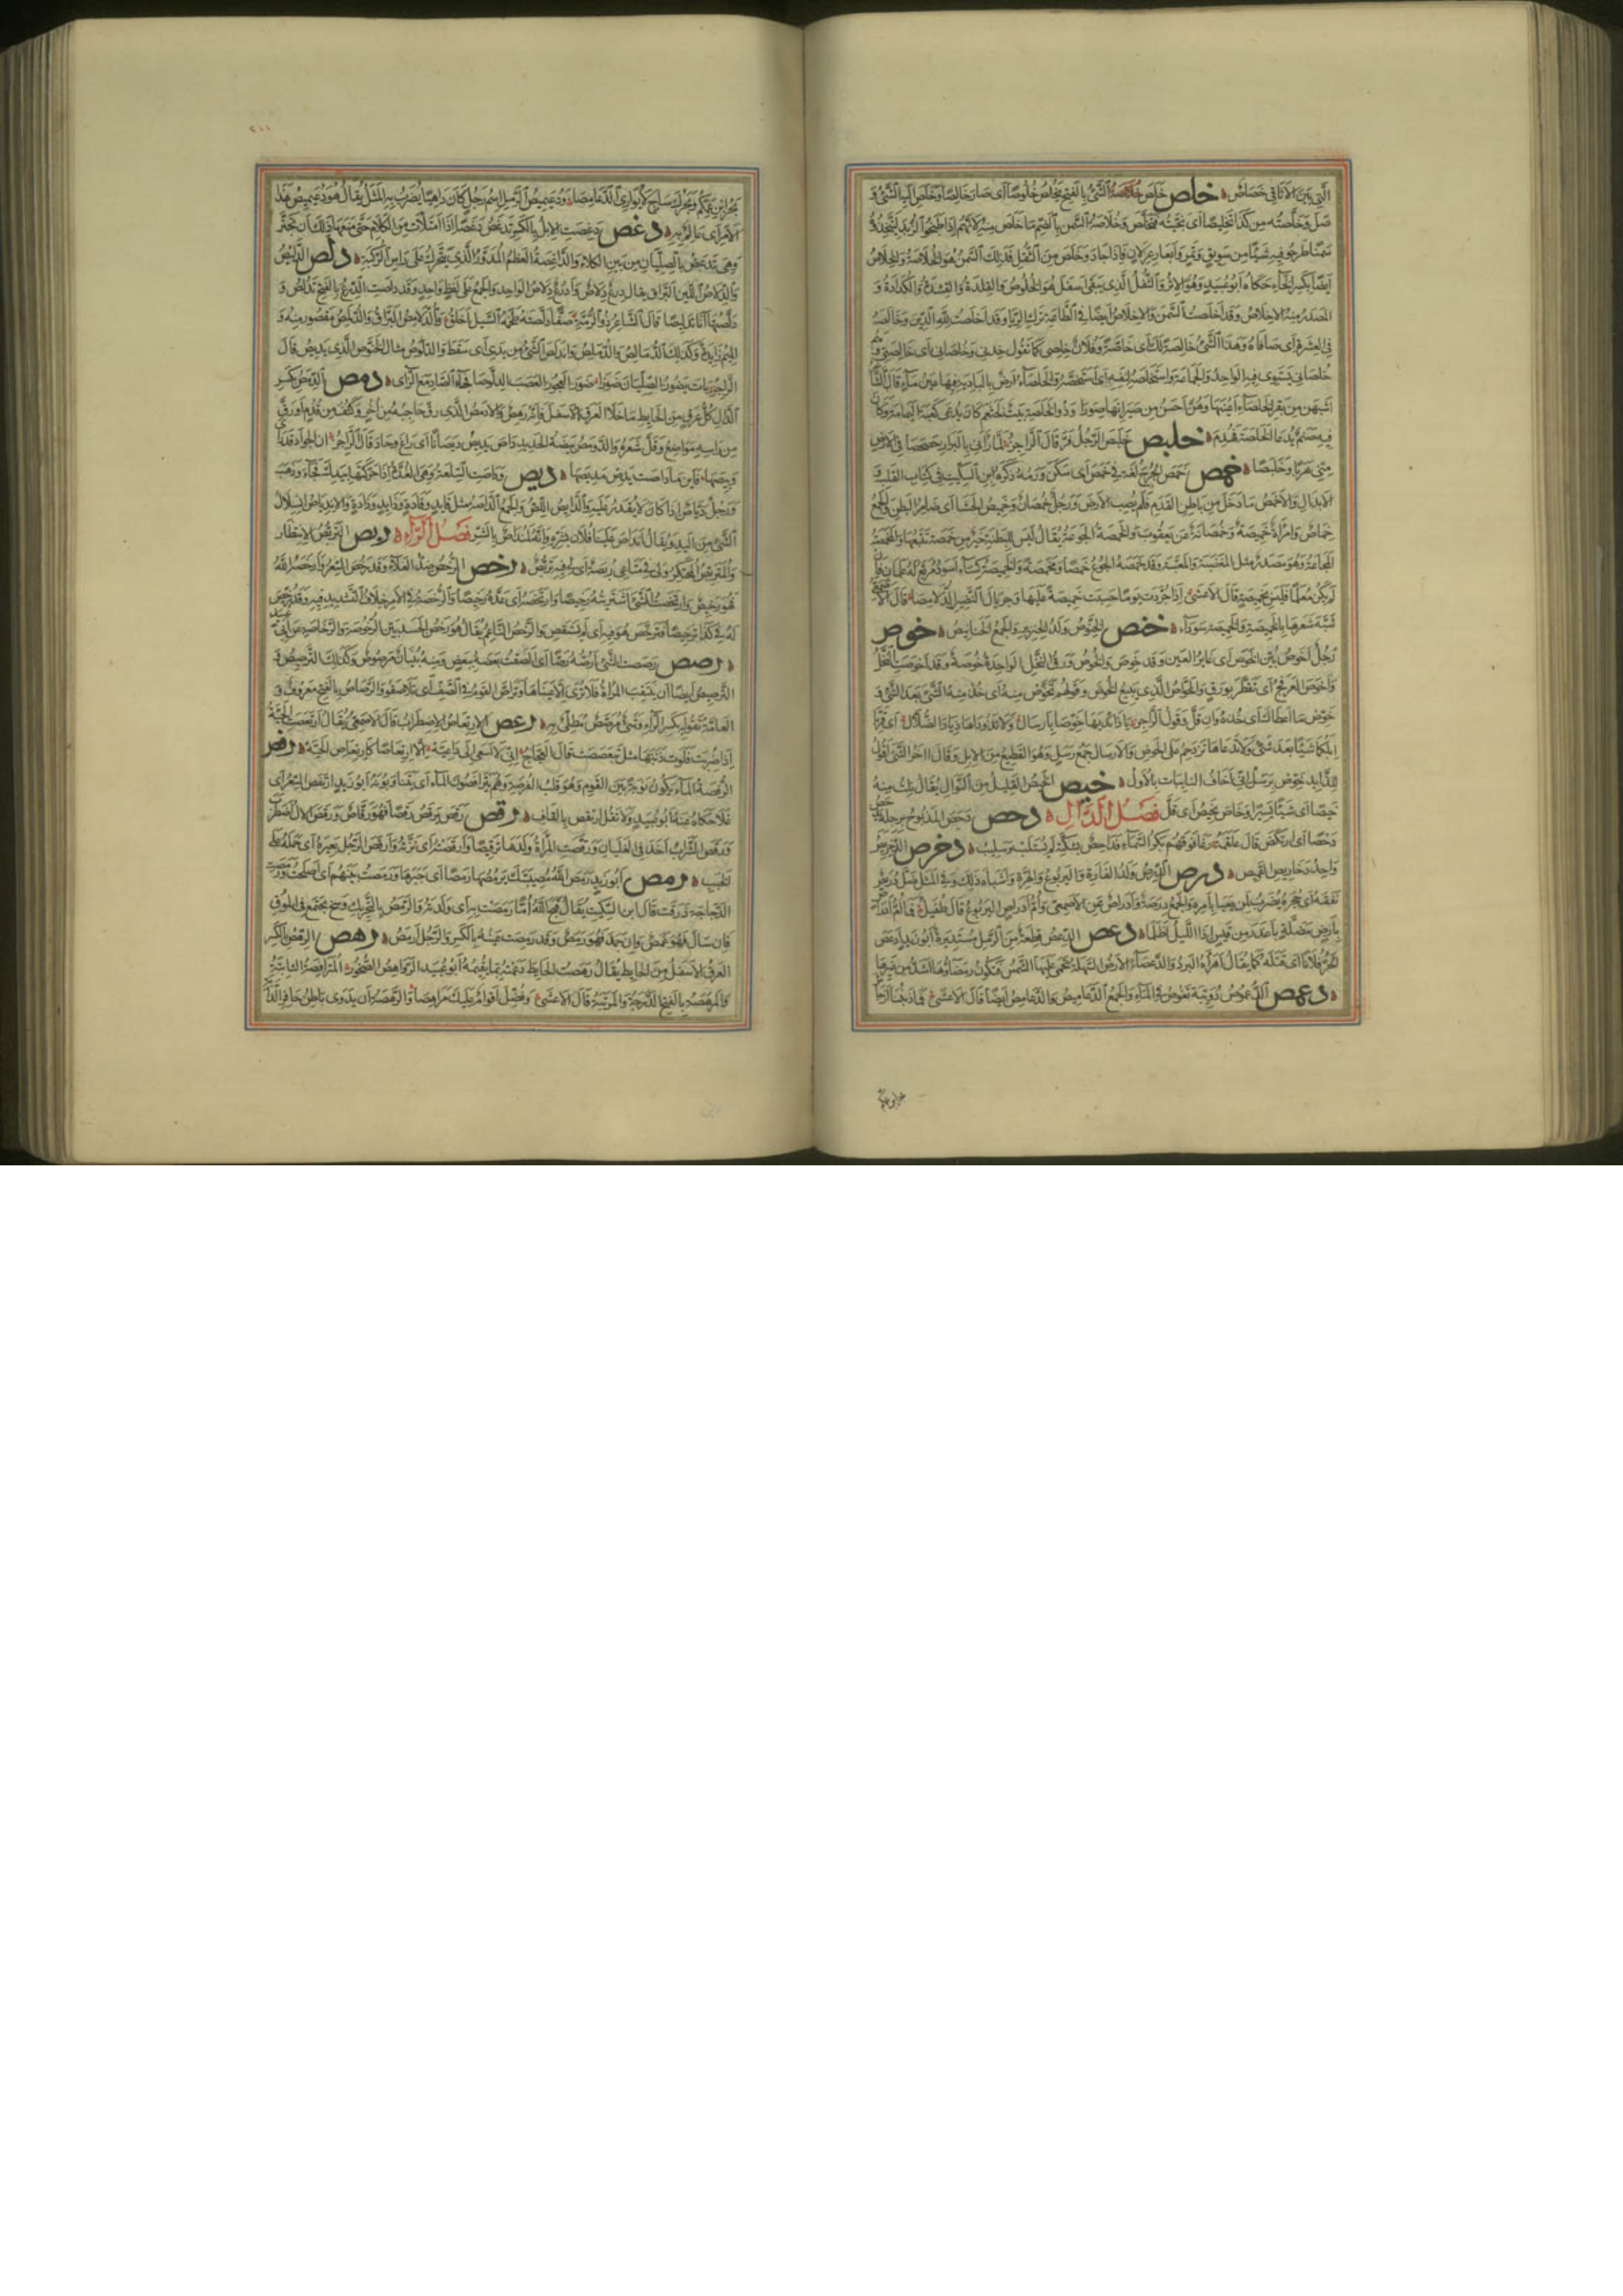 التى بين الاثافى خصاص خلص خلص الشئ بالفتح يخلص خلوصا اى صار خالصا وخلص اليه الشئ و
صل وخلصته من كذا تخليصا اى نجيته فتخلص وخلاصة السمن بالضم ما خلص منه لانهم اذا طبخوا الزبد ليتخذوه
سمنا طرحوا فيه شيئا من سويق وتمر وابعار غزلان فاذا جاد وخلص من الثفل فذلك السمن هو الخلاصة والخلاص
ايضا بكسر الخاء حكاه ابو عبيد وهو الاثر والثفل الذى يبقى اسفل هو الخلوص والقلدة والقشدة والكدادة و
المصدر منه الاخلاص وقد اخلصت السمن والاخلاص ايضا فى الطاعة ترك الريا وقد اخلصت لله الدين وخالصه
فى العشرة اى صافاه وهذا الشئ خالصة لك اى خاصة وفلان خلصى كما تقول خدنى وخلصانى اى خالصتى وهم
خلصانى يستوى فيه الواحد والجماعة واستخلصه لنفسه اى استخصه والخلصاء ارض بالبادية فيها عين ماء قال الشا
اشبهن من بقر الخلصاء اعينها وهن احسن من صيرانها صورا وذو الخلصة بيت لخثعم كان يدعى كعبة اليمامة وكان
فيه صنم يدعا الخلصة فهدم خلبص خلبص الرجل فر قال الراجز لما رآنى بالبراز حصحصا فى الارض
منى هربا وخلبصا خمص خمص الجرح لغة فى حمص اى سكن ورمه ذكره ابن السكيت فى كتاب القلب و
الابدال والاخمص ما دخل من باطن القدم فلم يصب الارض ورجل خمصان وخميص الحشا اى ضامر البطن والجمع
خماص وامراة خميصة وخمصانة عن يعقوب والخمصة الجوعة يقال ليس للبطنة خير من خمصة تتبعها والمخمصة
المجاعة وهو مصدر مثل المغضبة والمعتبة وقد خمصه الجوع خمصا ومخمصة والخميصة كساء اسود مربع له علمان فان
لم يكن معلما فليس بخميصة قال الاعشى اذا جردت يوما حسبت خميصة عليها وجريال النضير الدلامصا قال الاصمعى
شبه شعرها بالخميصة والخميصة سوداء خنص الخنوص ولد الخنزير والجمع الخنانيص خوص
رجل اخوص بين الخوص اى غاير العين وقد خوص والخوص ورق النخل الواحدة خوصة وقد اخوصت النخل
واخوص العرفج اى تفطر بورق والخواص الذى يبيع الخوص وقولهم تخوص منه اى خذ منه الشئ بعد الشئ و
خوص ما اعطاك اى خذه وان قل وقول الراجز يا ذائديها خوصا بارسال ولا تذوداها ذياد الضلال اى قربا
ابلكما شيئا بعد شئ ولا تدعاها تزدحم على الحوض والارسال جمع رسل وهو القطيع من الابل وقال آخر اقول
للذايد خوص برسل انى اخاف النايبات بالاول خيص الخيص القليل من النوال يقال نلت منه
خيصا اى شيئا يسيرا وخاص يخيص اى قل فصل الدال دحص دحص المذبوح برجله
دحصا اى ارتكض قال علقمة رغا فوقهم سقب السماء فداحص بشكته لم يستلب وسليب دخرص الدخريص
واحد دخاريص القميص درص الدرص ولد الفارة واليربوع والهرة واشباه ذلك وفى المثل ضل دريص
نفقه اى جحره يضرب لمن يعيا بامره والجمع درصة وادراص عن الاصمعى وام ادراص اليربوع قال طفيل فما ام ادراص
بارض مضلة باغدر من قيس اذا الليل اظلما دعص الدعص قطعة من الرمل مستديرة ابو زيد ادعص
الحر فلانا اى قتله كما يقال اهرأه البرد والدعصاء الارض السهلة تحمى عليها الشمس فتكون رمضاؤها اشد من غيرها
دعمص الدعموص دويبة تغوص فى الماء والجمع الدعاميص والدعامص ايضا قال الاعشى فما ذنبنا ان جا
بحر ابن عمكم وبحرك ساج لا يوارى الدعامصا ودعيميص الرمل اسم رجل كان داهيا يضرب به المثل يقال هو دعيميص هذا
الامر اى عالم به دغص دغصت الابل بالكسر تدغص دغصا اذا امتلات من الكلاء حتى منعها ذلك ان تجتر
وهى تدغص بالصليان من بين الكلاء والداغصة العظم المدور الذى يتحرك على راس الركبة دلص الدليص
والدلاص اللين البراق يقال درع دلاص وادرع دلاص الواحد والجمع على لفظ واحد وقد دلصت الدرع بالفتح تدلص و
دلصتها انا تدليصا قال الشاعر ذو الرمة صفا دلصته طحمة السيل اخلق والدلامص البراق والدلمص مقصور منه و
الميم زايدة وكذلك الدمالص والدملص واندلص الشئ من يدى اى سقط والدلوص مثال الخنوص الذى يديص قال
الراجز بات يضوز الصليان ضوزا ضوز العجوز العصب الدلوصا فجاء الصاد مع الزاى دمص الدمص بكسر
الدال كل عرق من الحايط ما خلا العرق الاسفل فانه رهص والادمص الذى رق حاجبه من اخر وكثف من قدم او رق
من راسه مواضع وقل شعره والدومص بيضة الحديد داص يديص ديصانا اى راغ وحاد قال الراجز ان الجواد قد رأى
وبيصها فاين ما داصت يدص مديصها ديص وداصت السلعة وهى الغدة اذا حركتها بيدك فجاءت وذهبت
ورجل دياص اذا كان لا يقدر عليه والدايص اللص والجمع الداصة مثل قايد وقادة وذايد وذادة والاندياص انسلال
الشئ من اليد ويقال انداص علينا فلان بشره وانه لمنداص بالشر فصل الراء ربص التربص الانتظار
والمتربص المحتكر ولى فى متاعى ربصة اى لى فيه تربص رخص الرخص ضد الغلاء وقد رخص السعر وارخصه الله
فهو رخيص وارتخصت الشئ اشتريته رخيصا وارتخصه اى عده رخيصا والرخصة فى الامر خلاف التشديد فيه وقد رخص
له فى كذا ترخيصا فترخص هو فيه اى لم يستقص والرخص الناعم يقال هو رخص الجسد بين الرخوصة والرخاصة عن ابى عبيد
رصص رصصت الشئ ارصه رصا اى الصقت بعضه ببعض ومنه بنيان مرصوص وكذلك الترصيص و
الترصيص ايضا ان تنتقب المراة فلا ترى الا عيناها وتراص القوم فى الصف اى تلاصقوا والرصاص بالفتح معروف و
العامة تقوله بكسر الراء وشئ مرصص مطلى به رعص الارتعاص الاضطراب قال الاصمعى يقال ارتعصت الحية
اذا ضربت فلوت ذنبها مثل تبعصصت قال العجاج انى لا اسعى الى داعيه الا ارتعاصا كارتعاص الحيه رفص
الرفصة الماء يكون نوبة بين القوم وهو قلب الفرصة وهم يترافصون الماء اى يتناوبونه ابو زيد ارتفص السعر اى
غلا حكاه عنه ابو عبيد ولا تقل ارتقص بالقاف رقص رقص يرقص رقصا فهو رقاص ورقص الال اضطرب
ورقص الشراب اخذ فى الغليان ورقصت المراة ولدها ترقيصا وارقصته اى نزته وارقص الرجل بعيره اى حمله على
الخبب رمص ابو زيد رمص الله مصيبتك يرمصها رمصا اى جبرها ورمصت بينهم اى اصلحت ورمصت
الدجاجة ذرقت قال ابن السكيت يقال قبح الله اما رمصت به اى ولدته والرمص بالتحريك وسخ يجتمع فى الموق
فان سال فهو غمص وان جمد فهو رمص وقد رمصت عينه بالكسر والرجل ارمص رهص الرهص بالكسر
العرق الاسفل من الحايط يقال رهصت الحايط دعمته بما يقيمه ابو عبيد الرواهص الصخور المتراصفة الثابتة
والمرهصة بالفتح الدرجة والمرتبة قال الاعشى وفضل اقوام عليك مراهصا والرهصة ان يدوى باطن حافر الدابة